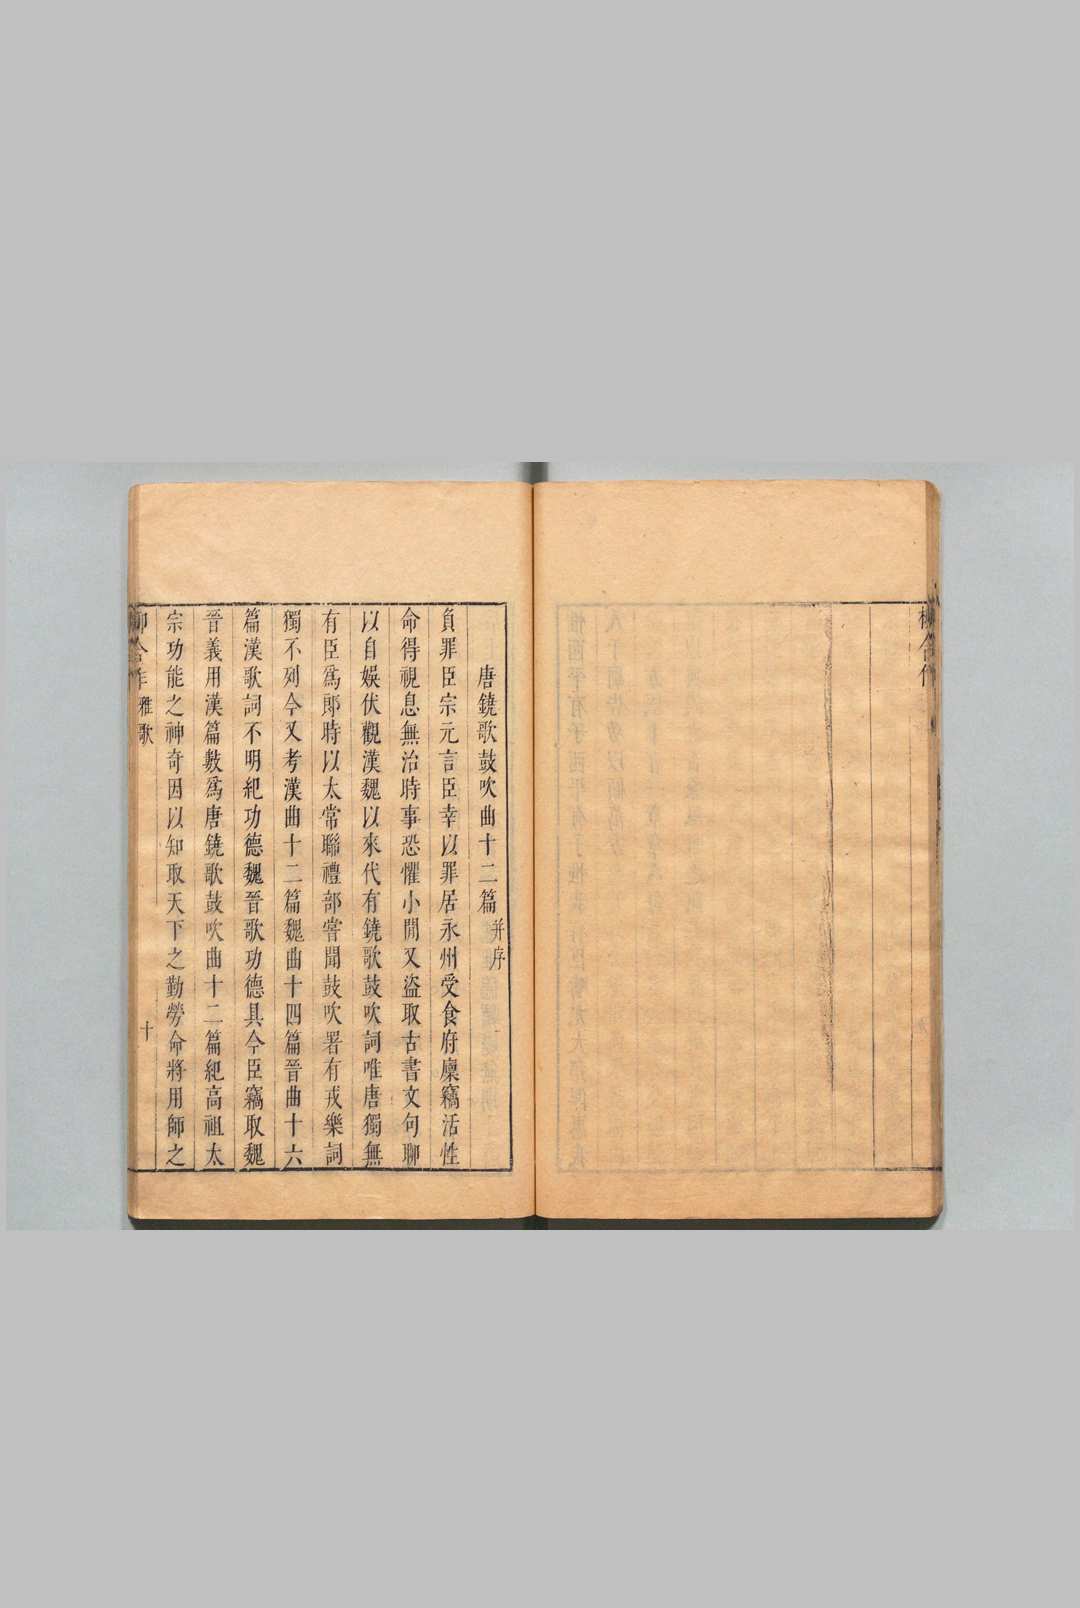 唐鐃歌鼓吹曲十二篇并序
負罪臣宗元言臣幸以罪居永州受食府廩竊活性
命得視息無治時事恐懼小閒又盜取古書文句聊
以自娛伏觀漢魏以來代有鐃歌鼓吹詞唯唐獨無
有臣爲郎時以太常聯禮部嘗聞鼓吹署有戎樂詞
獨不列今又考漢曲十二篇魏曲十四篇晉曲十六
篇漢歌詞不明紀功德魏晉歌功德具今臣竊取魏
晉義用漢篇數爲唐鐃歌鼓吹曲十二篇紀高祖太
宗功能之神奇因以知取天下之勤勞命將用師之
雅歌
十